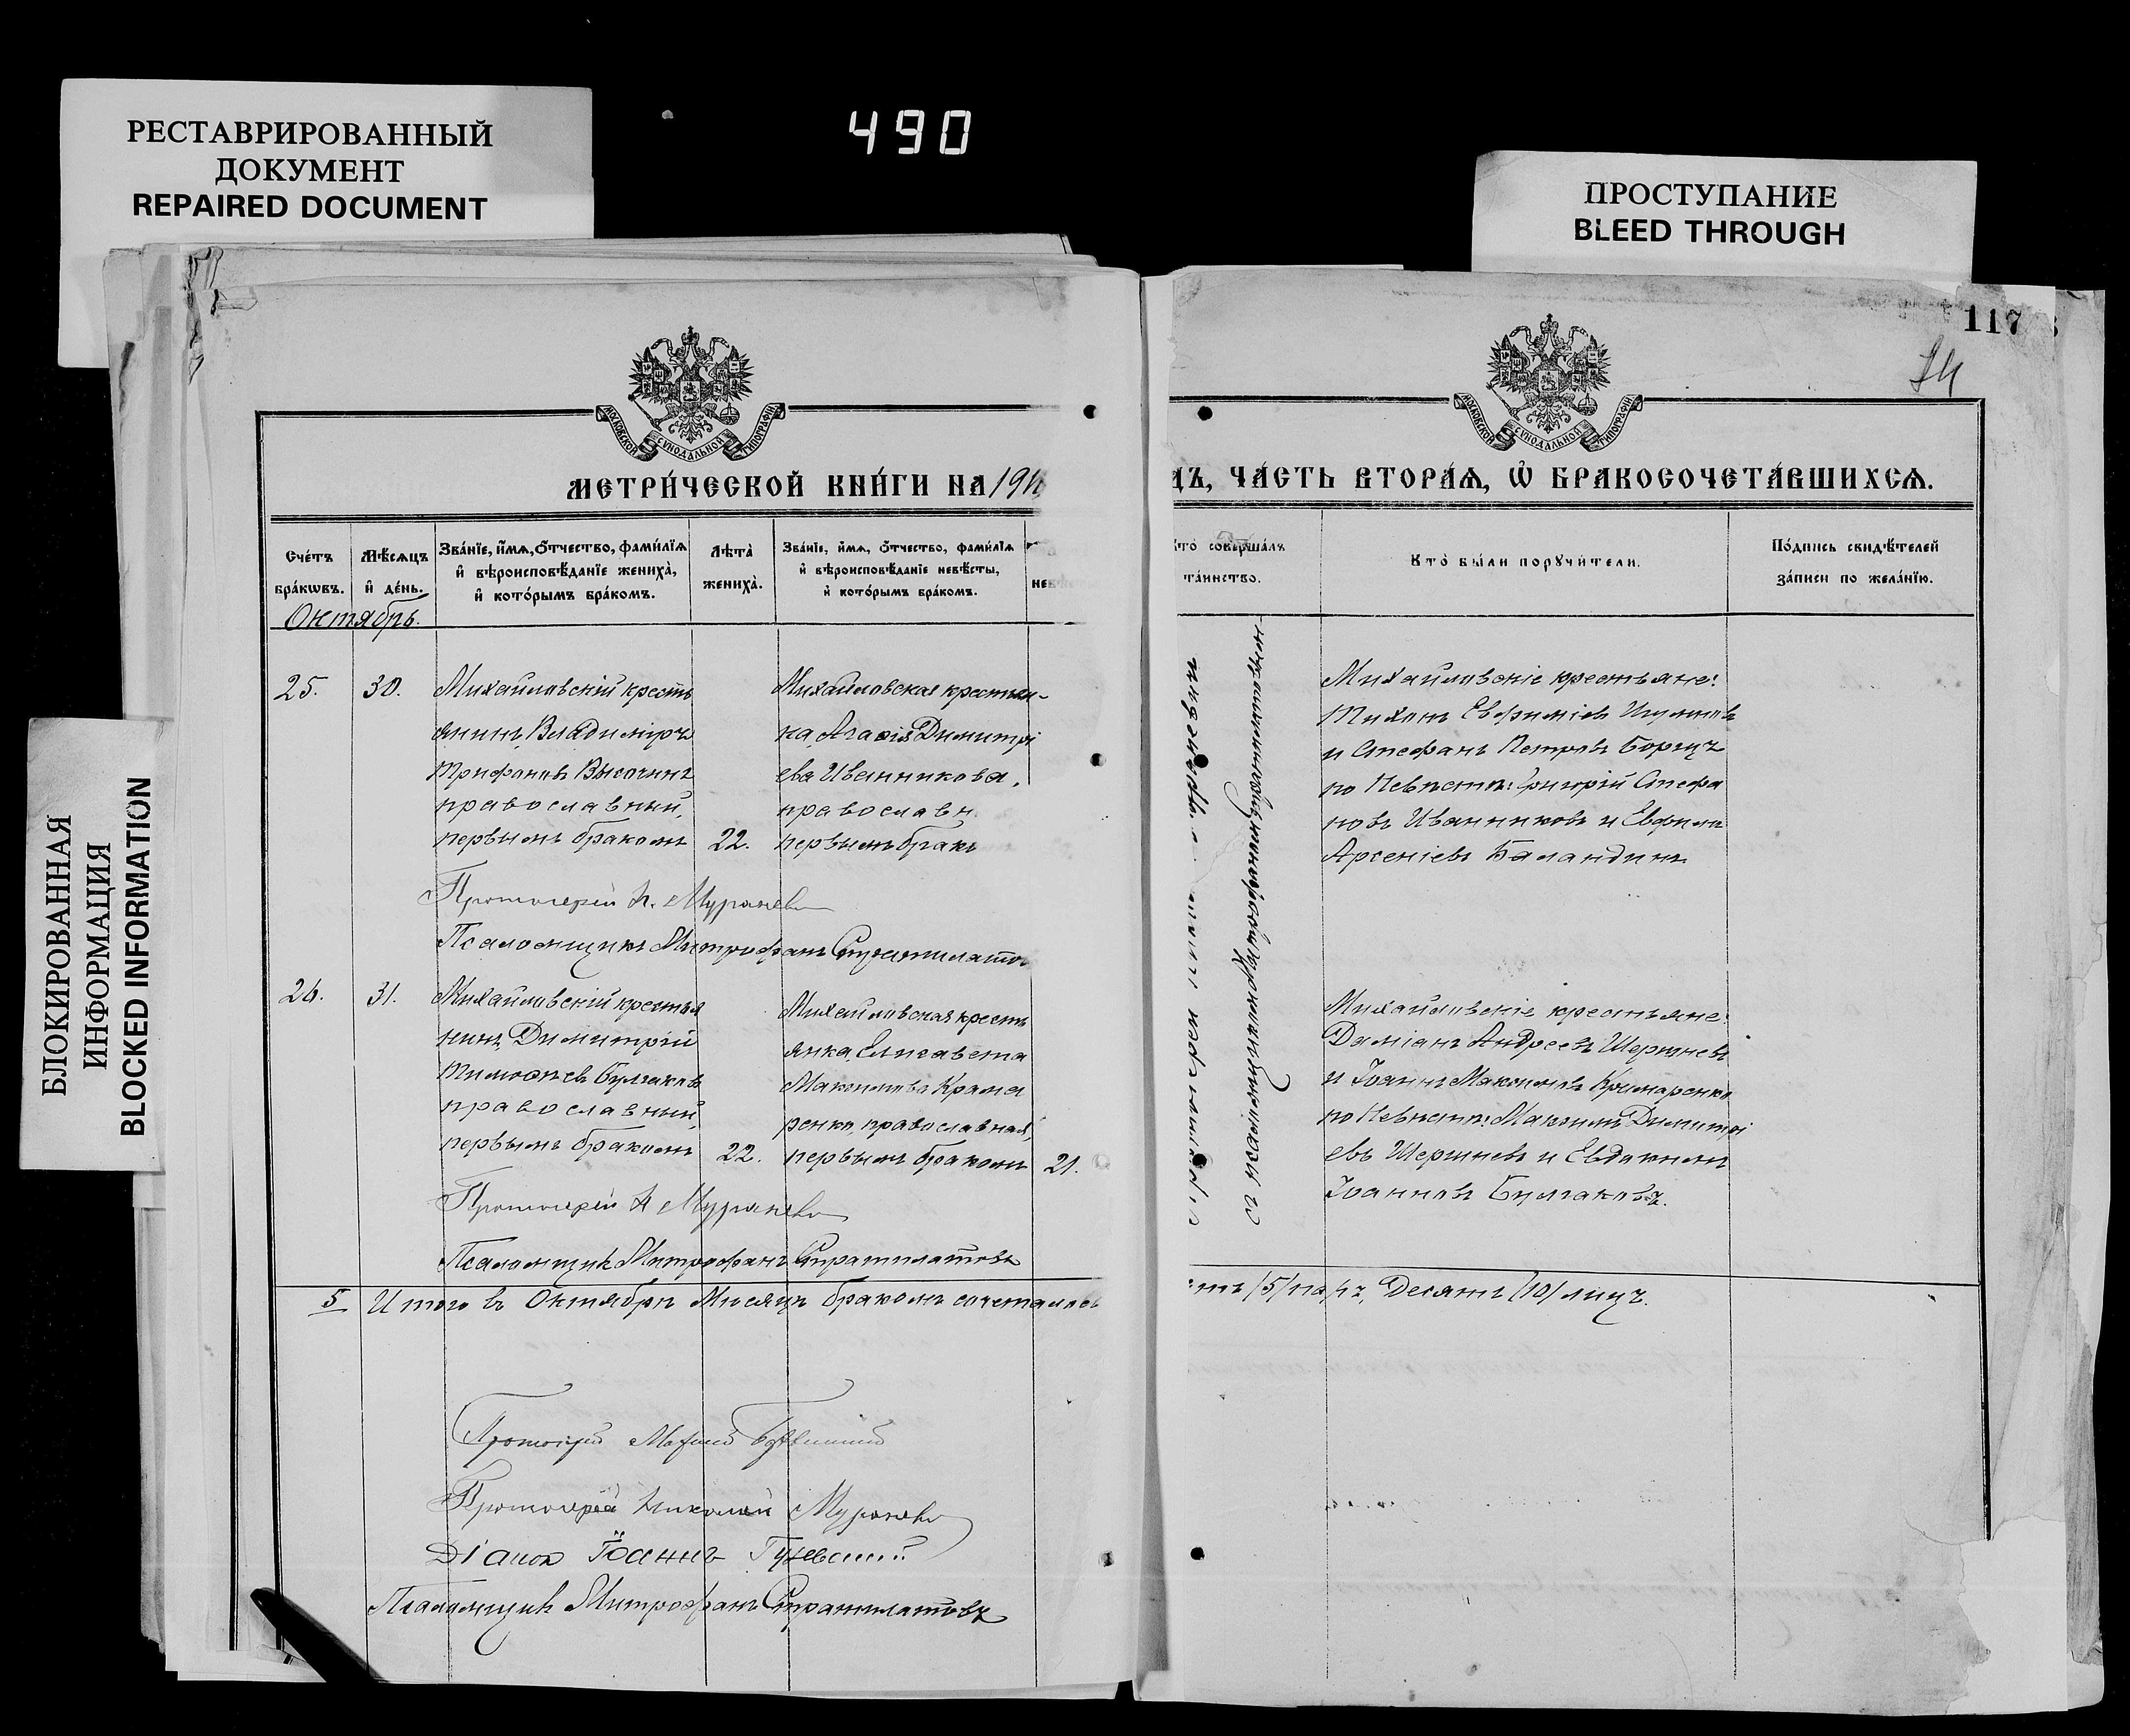 РЕСТАВРИРОВАННЫЙ
ДОКУМЕНТ
REPAIRED DOCUMENT
490
ПРОСТУПАНИЕ
BLEED THROUGH
БЛОКИРОВАННАЯ
ИНФОРМАЦИЯ
BLOCKED INFORMATION
117
74
МОСКОВСКОЙ СѴНОДАЛЬНОЙ ТИПОГРАФІИ
МОСКОВСКОЙ СѴНОДАЛЬНОЙ ТИПОГРАФІИ
МЕТРИ́ЧЕСКОЙ КНИ́ГИ НА 191
ДЪ, ЧА́СТЬ ВТОРА́Ѧ, Ѡ҆ БРАКОСОЧЕТА́ВШИХСѦ.
Сче́тъ
бра́кѡвъ.
Мѣ́сѧцъ
и҆ де́нь.
Зва́нїе, и҆́мѧ, ѻ҆́тчество, фами́лїѧ
и҆ вѣроисповѣ́данїе жениха̀,
и҆ кото́рымъ бра́комъ.
Лѣ́та̀
жениха̀.
Зва́нїе, и҆́мѧ, ѻ҆́тчество, фами́лїѧ
и҆ вѣроисповѣ́данїе невѣ́сты,
и҆ кото́рымъ бра́комъ.
Кто̀ соверша́лъ
та́инство.
Кто̀ бы́ли порꙋчи́тели.
По́дпись свидѣ́телей
за́писи по жела́нїю.
Октябрь.
25.
30.
Михайловскій кресть
янинъ, Владиміръ
Трифоновъ Высочинъ
православный,
первымъ бракомъ
22.
Михайловская крестьян-
ка, Агаѳія Димитрі
ева Иванникова,
православн
первымъ брак
Михайловскіе крестьяне:
Тихонъ Евфиміевъ
и Стефанъ Петровъ Борщъ
по Невѣстѣ: Григорій Стефа
новъ Иванниковъ и Евфимъ
Арсеніевъ Баландинъ
Протоіерей Н. Мураневъ
Псаломщикъ Митрофанъ Стратилато
26.
31.
Михайловскій крестья
нинъ, Димитрій
Тимоѳеевъ Булгаковъ
православный,
первымъ бракомъ
22.
Михайловская кресть
янка, Елисавета
Максимова Крама
ренко, православная,
первымъ бракомъ
21.
Михайловскіе крестьяне:
Даміанъ Андреевъ Шершневъ
и Іоаннъ Максимовъ Крамаренко
по Невѣстѣ: Максимъ Димитрі
евъ Шершневъ и Евдокимъ
Іоанновъ Булгаковъ.
Протоіерей Н Мураневъ
Псаломщикъ Митрофанъ Стратилатовъ
5 Итого въ Октябрѣ Мѣсяцѣ бракомъ сочеталось
/5/ паръ, Десять /10/ лицъ.
Протоіерей
Протоіерей Николай Мураневъ
Діаконъ Іоаннъ
Псаломщикъ Митрофанъ Стратилатовъ